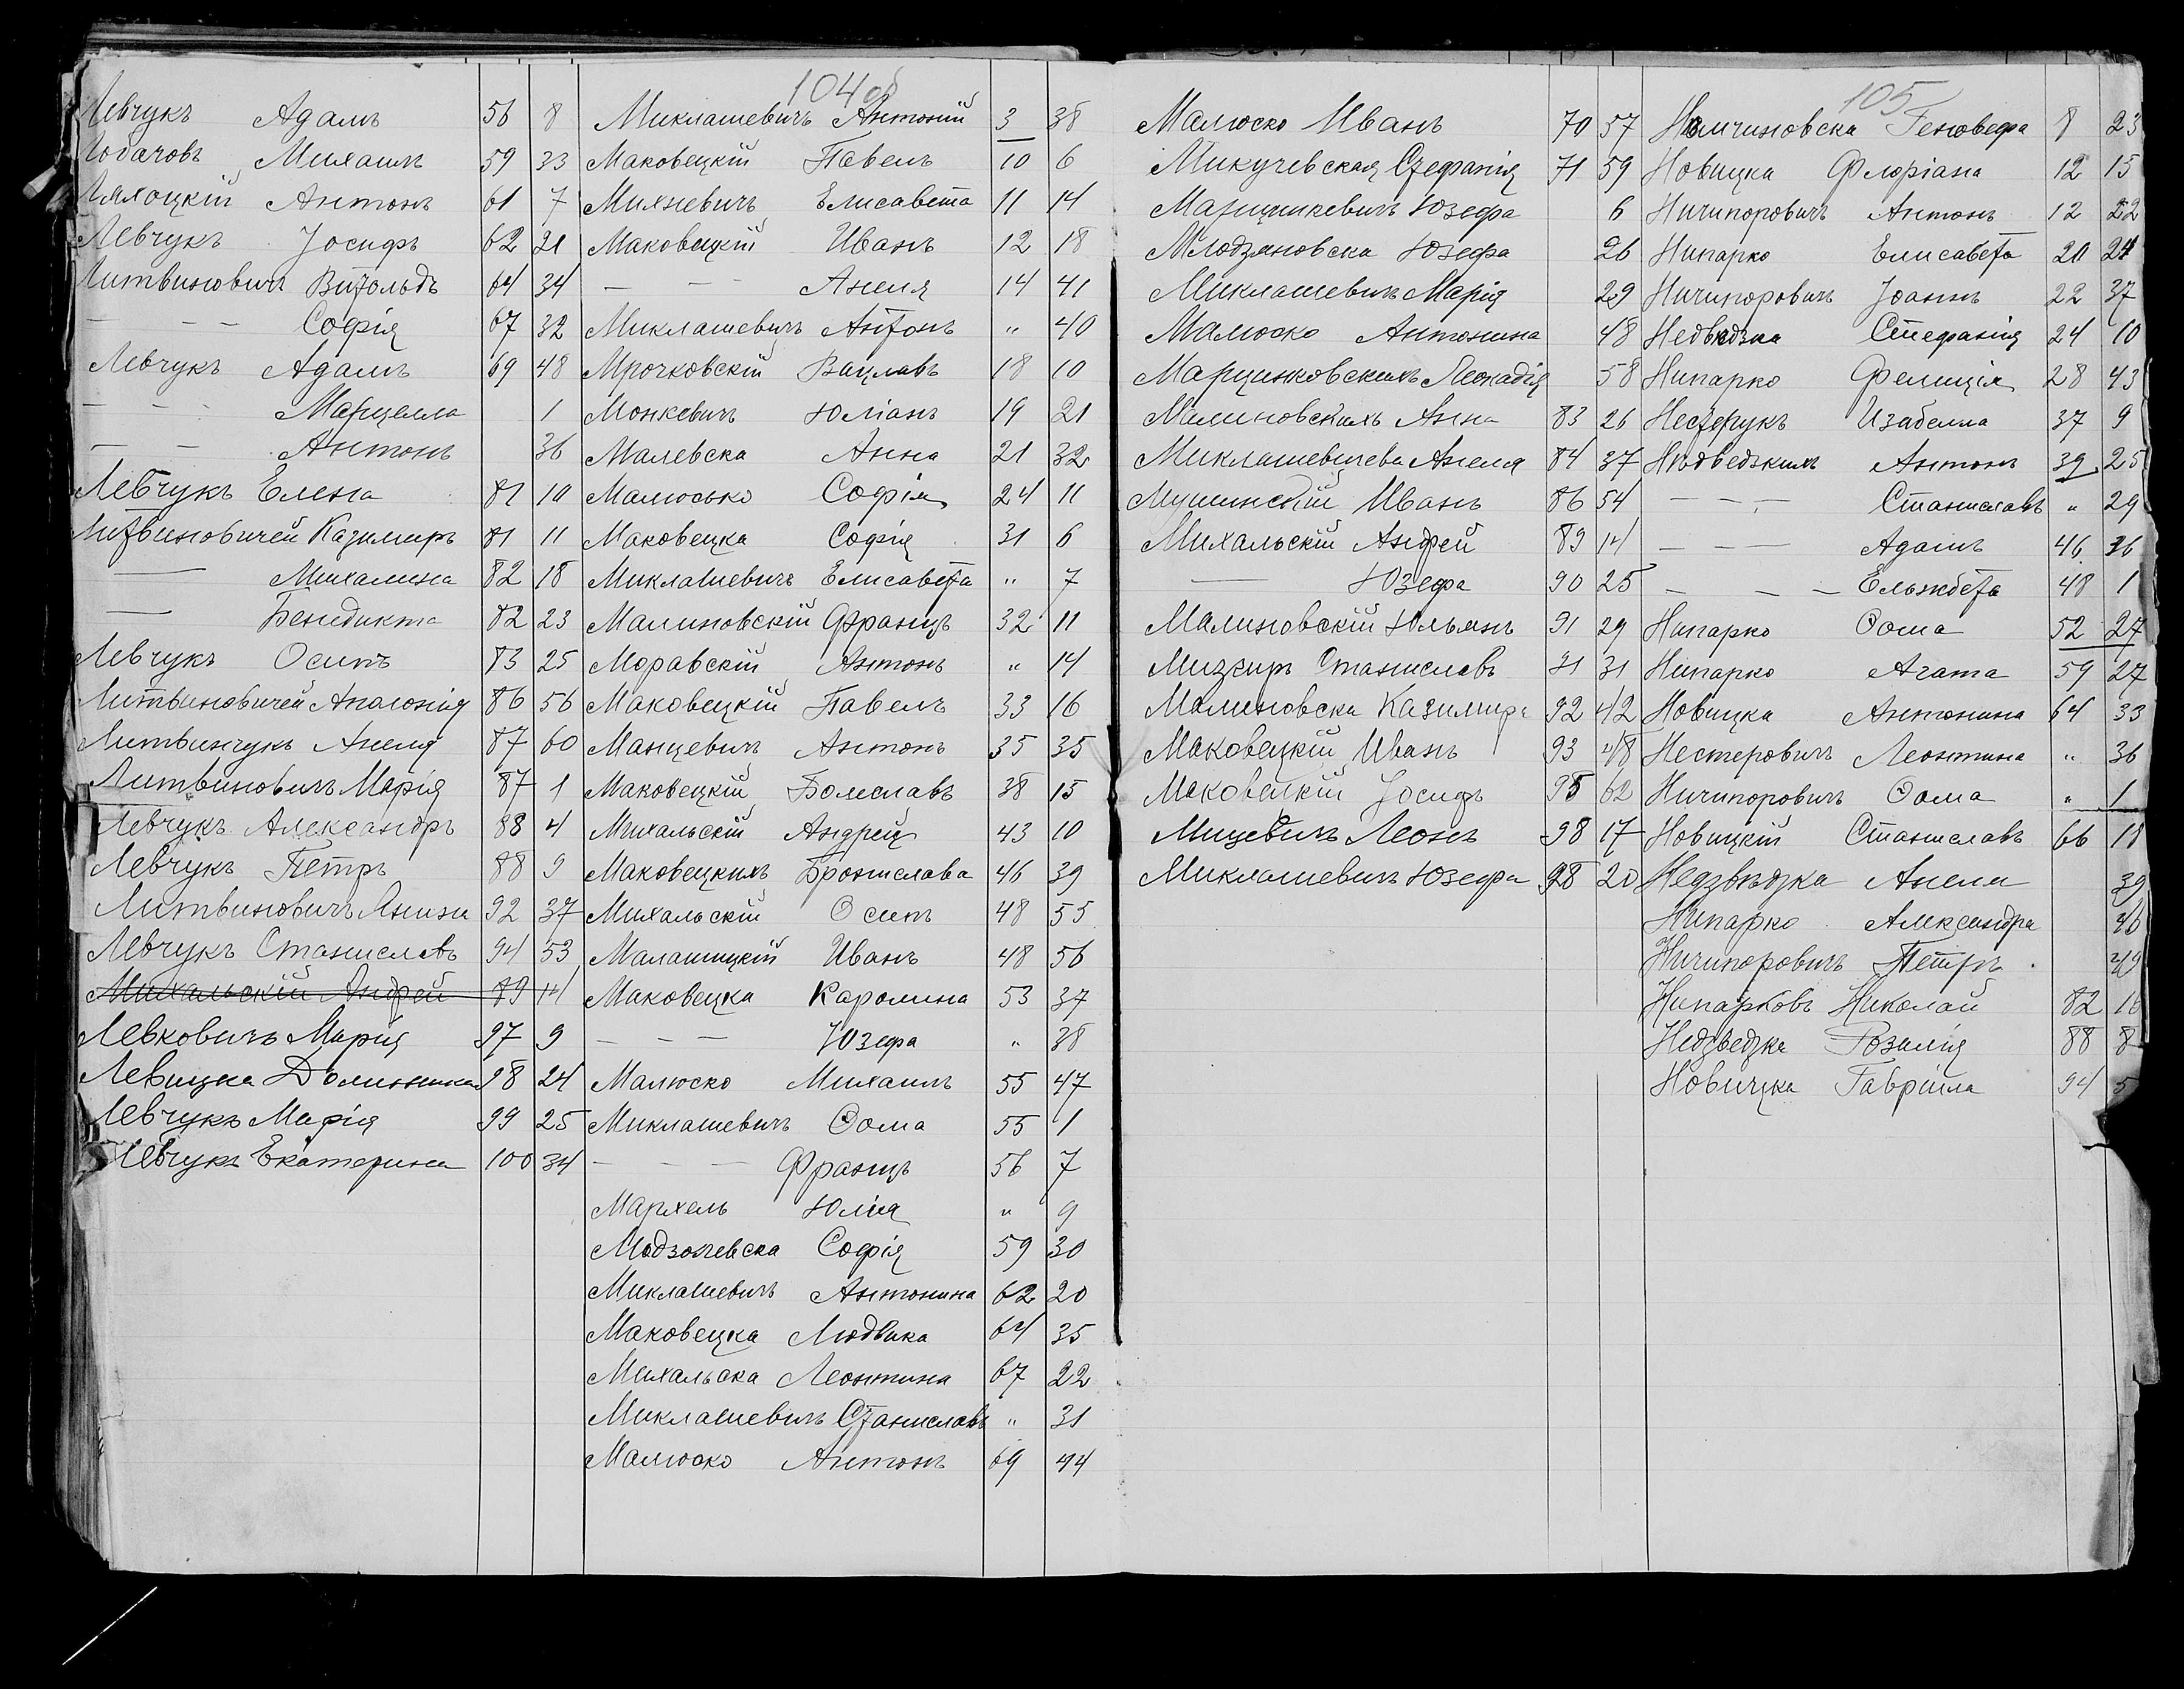 104 об
Левчукъ Адамъ 56 8
Лобачовъ Михаилъ 59 33
Лялоцкій Антонъ 61 7
Левчукъ Іосифъ 62 21
Литвиновичъ Витольдъ 64 34
— — — Софія 67 32
Левчукъ Адамъ 69 48
— — Марцелла 1
— — Антонъ 36
Левчукъ Елена 81 10
Литвиновичей Казимиръ 81 11
— Михалина 82 18
— Бенедикта 82 23
Левчукъ Осипъ 83 25
Литвиновичей Аполонія 86 56
Литвинчукъ Анеля 87 60
Литвиновичъ Марія 87 1
Левчукъ Александръ 88 4
Левчукъ Петръ 88 9
Литвиновичъ Янина 92 37
Левчукъ Станиславъ 94 53
Михальскій Андрей 89 14
Левковичъ Марія 97 9
Левицка Доминика 98 24
Левчукъ Марія 99 25
Левчукъ Екатерина 100 34
Миклашевичъ Антоній 3 38
Маковецкій Павелъ 10 6
Михневичъ Елисавета 11 14
Маковецкій Иванъ 12 18
— — — Анеля 14 41
Миклашевичъ Антонъ " 40
Мрочковскій Вацлавъ 18 10
Монкевичъ Юліанъ 19 21
Малевска Анна 21 32
Малюсько Софія 24 11
Маковецка Софія 31 6
Миклашевичъ Елисавета " 7
Малиновскій Францъ 32 11
Моравскій Антонъ " 14
Маковецкій Павелъ 33 16
Манцевичъ Антонъ 35 35
Маковецкій Болеславъ 38 15
Михальскій Андрей 43 10
Маковецкихъ Брониславa 46 39
Михальскій Осипъ 48 55
Малашицкій Иванъ 48 56
Маковецка Каролина 53 37
— — — Юзефа " 38
Малюско Михаилъ 55 47
Миклашевичъ Ѳома 55 1
— — — Францъ 56 7
Мархель Юлія " 9
Модзолевска Софія 59 30
Миклашевичъ Антонина 62 20
Маковецка Людвика 64 35
Михальска Леонтина 67 22
Миклашевичъ Станиславъ " 31
Малюско Антонъ 69 44
105
Малюско Иванъ 70 57
Микучевская Стефанія 71 59
Марцинкевичъ Юзефа 6
Млодзяновска Юзефа 26
Миклашевичъ Марія 29
Малюско Антонина 48
Марцинковскихъ Леокадія 58
Малиновскихъ Анна 83 26
Миклашевичева Анеля 84 37
Мушинскій Иванъ 86 54
Михальскій Андрей 89 14
— Юзефа 90 25
Малиновскій Юльянъ 91 29
Мизгиръ Станиславъ 91 31
Малиновска Казимира 92 42
Маковецкій Иванъ 93 48
Маковецкій Іосифъ 95 62
Мицевичъ Леонъ 98 17
Миклашевичъ Юзефа 98 20
Намчиновска Геновефа 8 23
Новицка Флоріана 12 15
Ничипоровичъ Антонъ 12 22
Нипарко Елисавета 20 24
Ничипоровичъ Іоаннъ 22 37
Недвѣдзка Стефанія 24 10
Нипарко Фелиція 28 43
Нестерукъ Изабелла 37 9
Нѣдведзкихъ Антонъ 39 25
— — — Станиславъ " 29
— — — Адамъ 46 36
— — — Ельжбета 48 1
Нипарко Ѳома 52 27
Нипарко Агата 59 27
Новицка Антонина 64 33
Нестеровичъ Леонтина " 36
Ничипоровичъ Ѳома " 1
Новицкій Станиславъ 66 18
Недзвѣдзка Анеля 39
Нипарко Александра 46
Ничипоровичъ Петръ 49
Нипарковъ Николай 82 16
Недзведзка Розалія 88 8
Новицка Гавріила 94 5